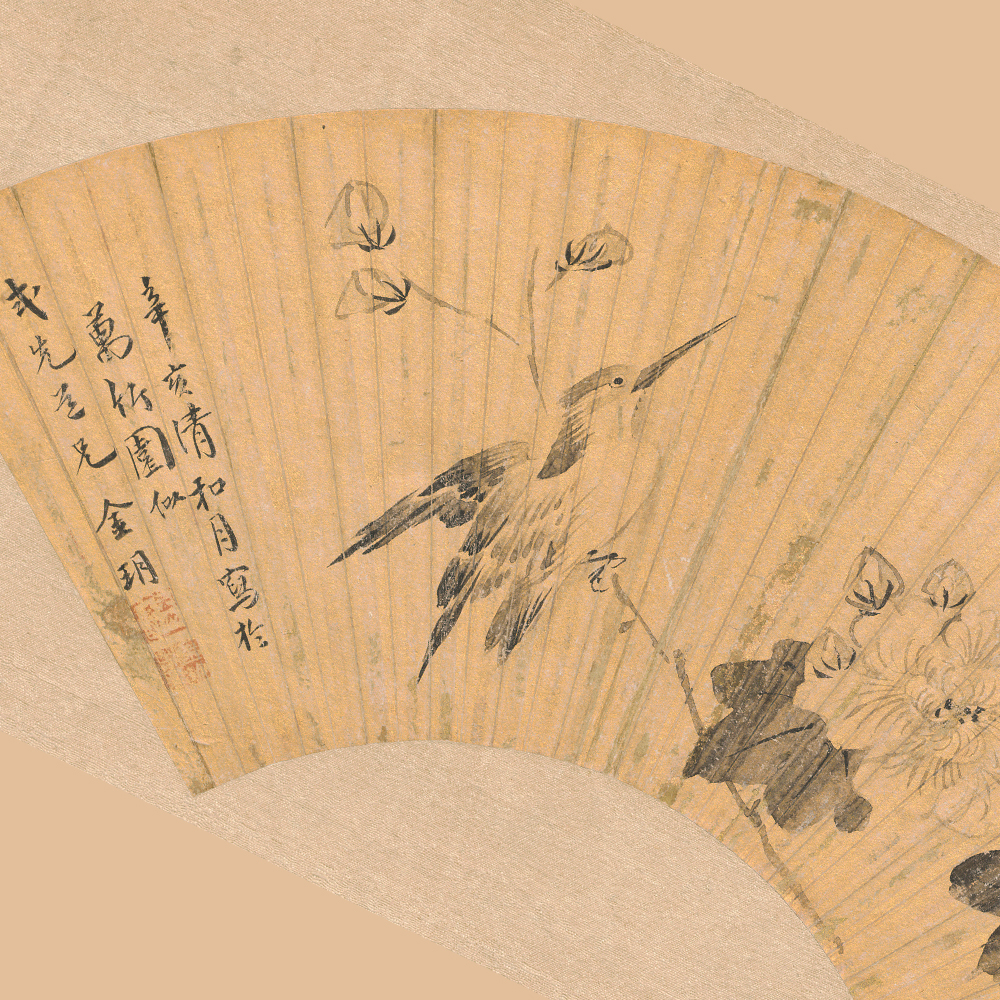 辛亥清和月寫於
萬竹園似
式先道兄金玥